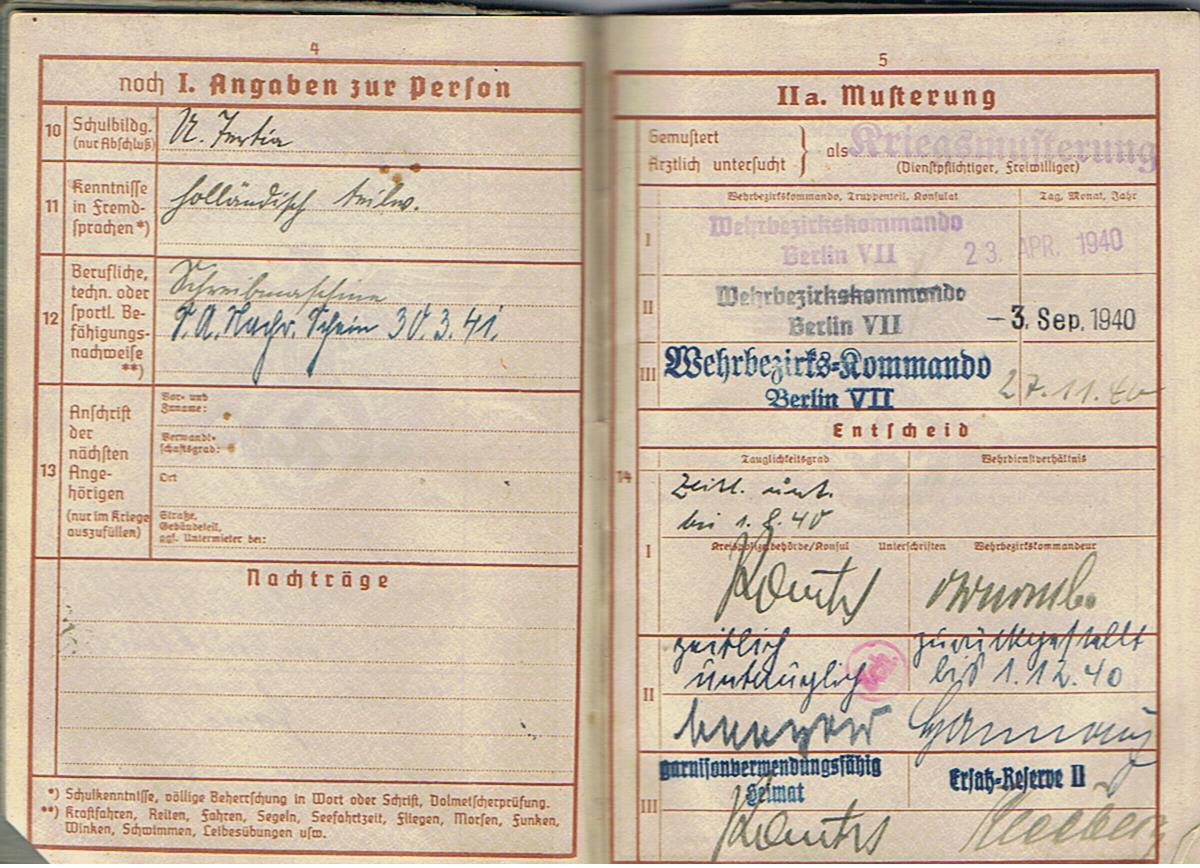 4
noch I. Angaben zur Person
10
Schulbildg.
(nur Abschluß)
U. Tertia
11
Kenntnisse
in Fremd-
sprachen *)
holländisch teilw.
12
Berufliche,
techn. oder
sportl. Be-
fähigungs-
nachweise
**)
Schreibmaschine
S.A. Nachr. Schein 30.3.41.
13
Anschrift
der
nächsten
Ange-
hörigen
(nur im Kriege
auszufüllen)
Vor- und
Zuname:
Verwandt-
schaftsgrad:
Ort
Straße,
Gebäudeteil,
ggf. Untermieter bei:
Nachträge
*) Schulkenntnisse, völlige Beherrschung in Wort oder Schrift, Dolmetscherprüfung.
**) Kraftfahren, Reiten, Fahren, Segeln, Seefahrtzeit, Fliegen, Morsen, Funken,
Winken, Schwimmen, Leibesübungen usw.
5
II a. Musterung
Gemustert
Ärztlich untersucht } als Kriegsmusterung
(Dienstpflichtiger, Freiwilliger)
Wehrbezirkskommando, Truppenteil, Konsulat
Tag, Monat, Jahr
I
Wehrbezirkskommando
Berlin VII 23. APR. 1940
II
Wehrbezirkskommando
Berlin VII -3. Sep. 1940
III
Wehrbezirks-Kommando
Berlin VII
27.11.40
Entscheid
14
Tauglichkeitsgrad
Wehrdienstverhältnis
I
Zeitl. unt.
bis 1.8.40
Kreispolizeibehörde/Konsul Unterschriften Wehrbezirkskommandeur
II
zeitlich zurückgestellt
untauglich bis 1.12.40
III
garnisonverwendungsfähig
Heimat
Ersatz-Reserve II